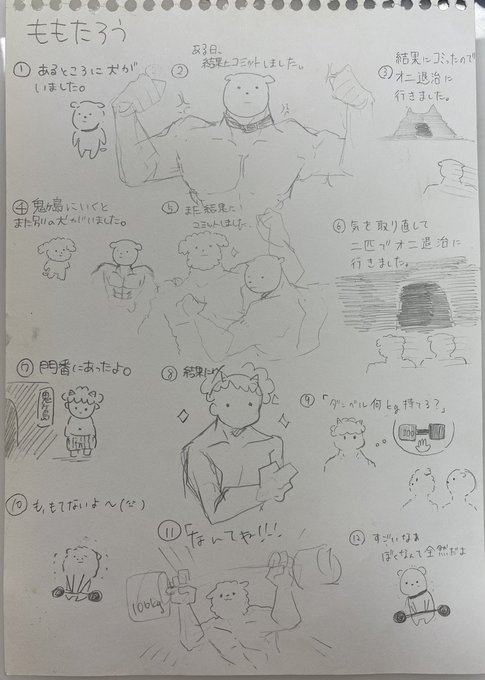 ももたろう
① あるところに犬が
いました。
② ある日、
結果にコミットしました。
③ 結果にコミったので
オニ退治に
行きました。
④ 鬼ヶ島にいくと
また別の犬がいました。
⑤ また結果に
コミットしました。
⑥ 気を取り直して
二匹でオニ退治に
行きました。
⑦ 門番にあったよ。
鬼ヶ島
⑧ 結果に
⑨ 「ダンベル何kg持てる?」
⑩ も、もてないよ〜
⑪ 「なんてね!!!
100kg
⑫ すごいなぁ
ぼくなんて全然だよ